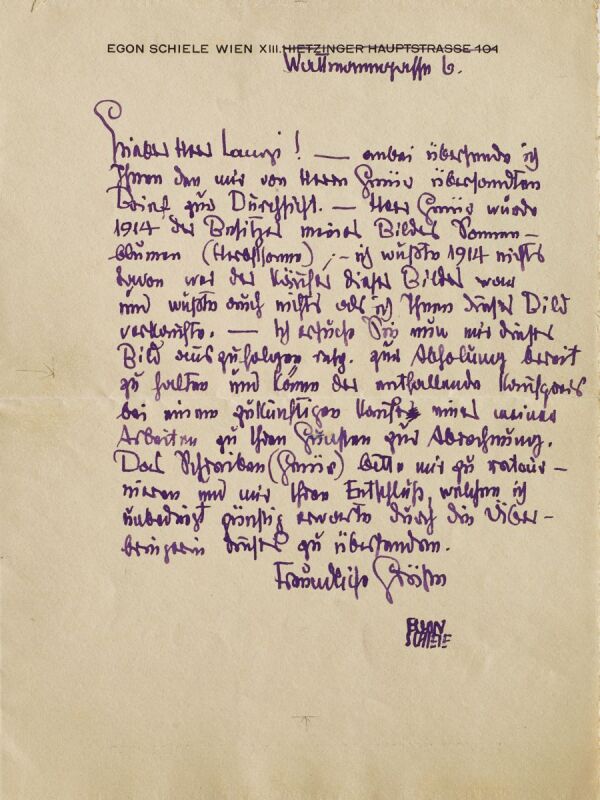 EGON SCHIELE WIEN XIII. HIETZINGER HAUPTSTRASSE 101
Wattmanngasse 6.
Lieber Herr Lanyi! — anbei übersende ich
Ihnen den mir von Herrn Grünz übersandten
Brief zur Durchsicht. — Herr wurde
1914 der Besitzer meines Bildes Sonnen-
blumen (Herbstsonne); – ich wußte 1914 nichts
davon wer der Käufer dieses Bildes war
und wußte auch nichts als ich Ihnen dieses Bild
verkaufte. — Ich ersuche Sie nun mir dieses
Bild auszufolgen resp. zur Abholung bereit
zu halten und könne der entfallende Kaufpreis
bei einem zukünftigen Kaufe einer meiner
Arbeiten zu Ihren Gunsten zur Abrechnung.
Das Schreiben bitte mir zu retour-
nieren und mir Ihren Entschluß, welchen ich
unbedingt günstig erwarte durch die Über-
bringerin dieses zu übersenden.
Freundliche Grüße
EGON
SCHIELE